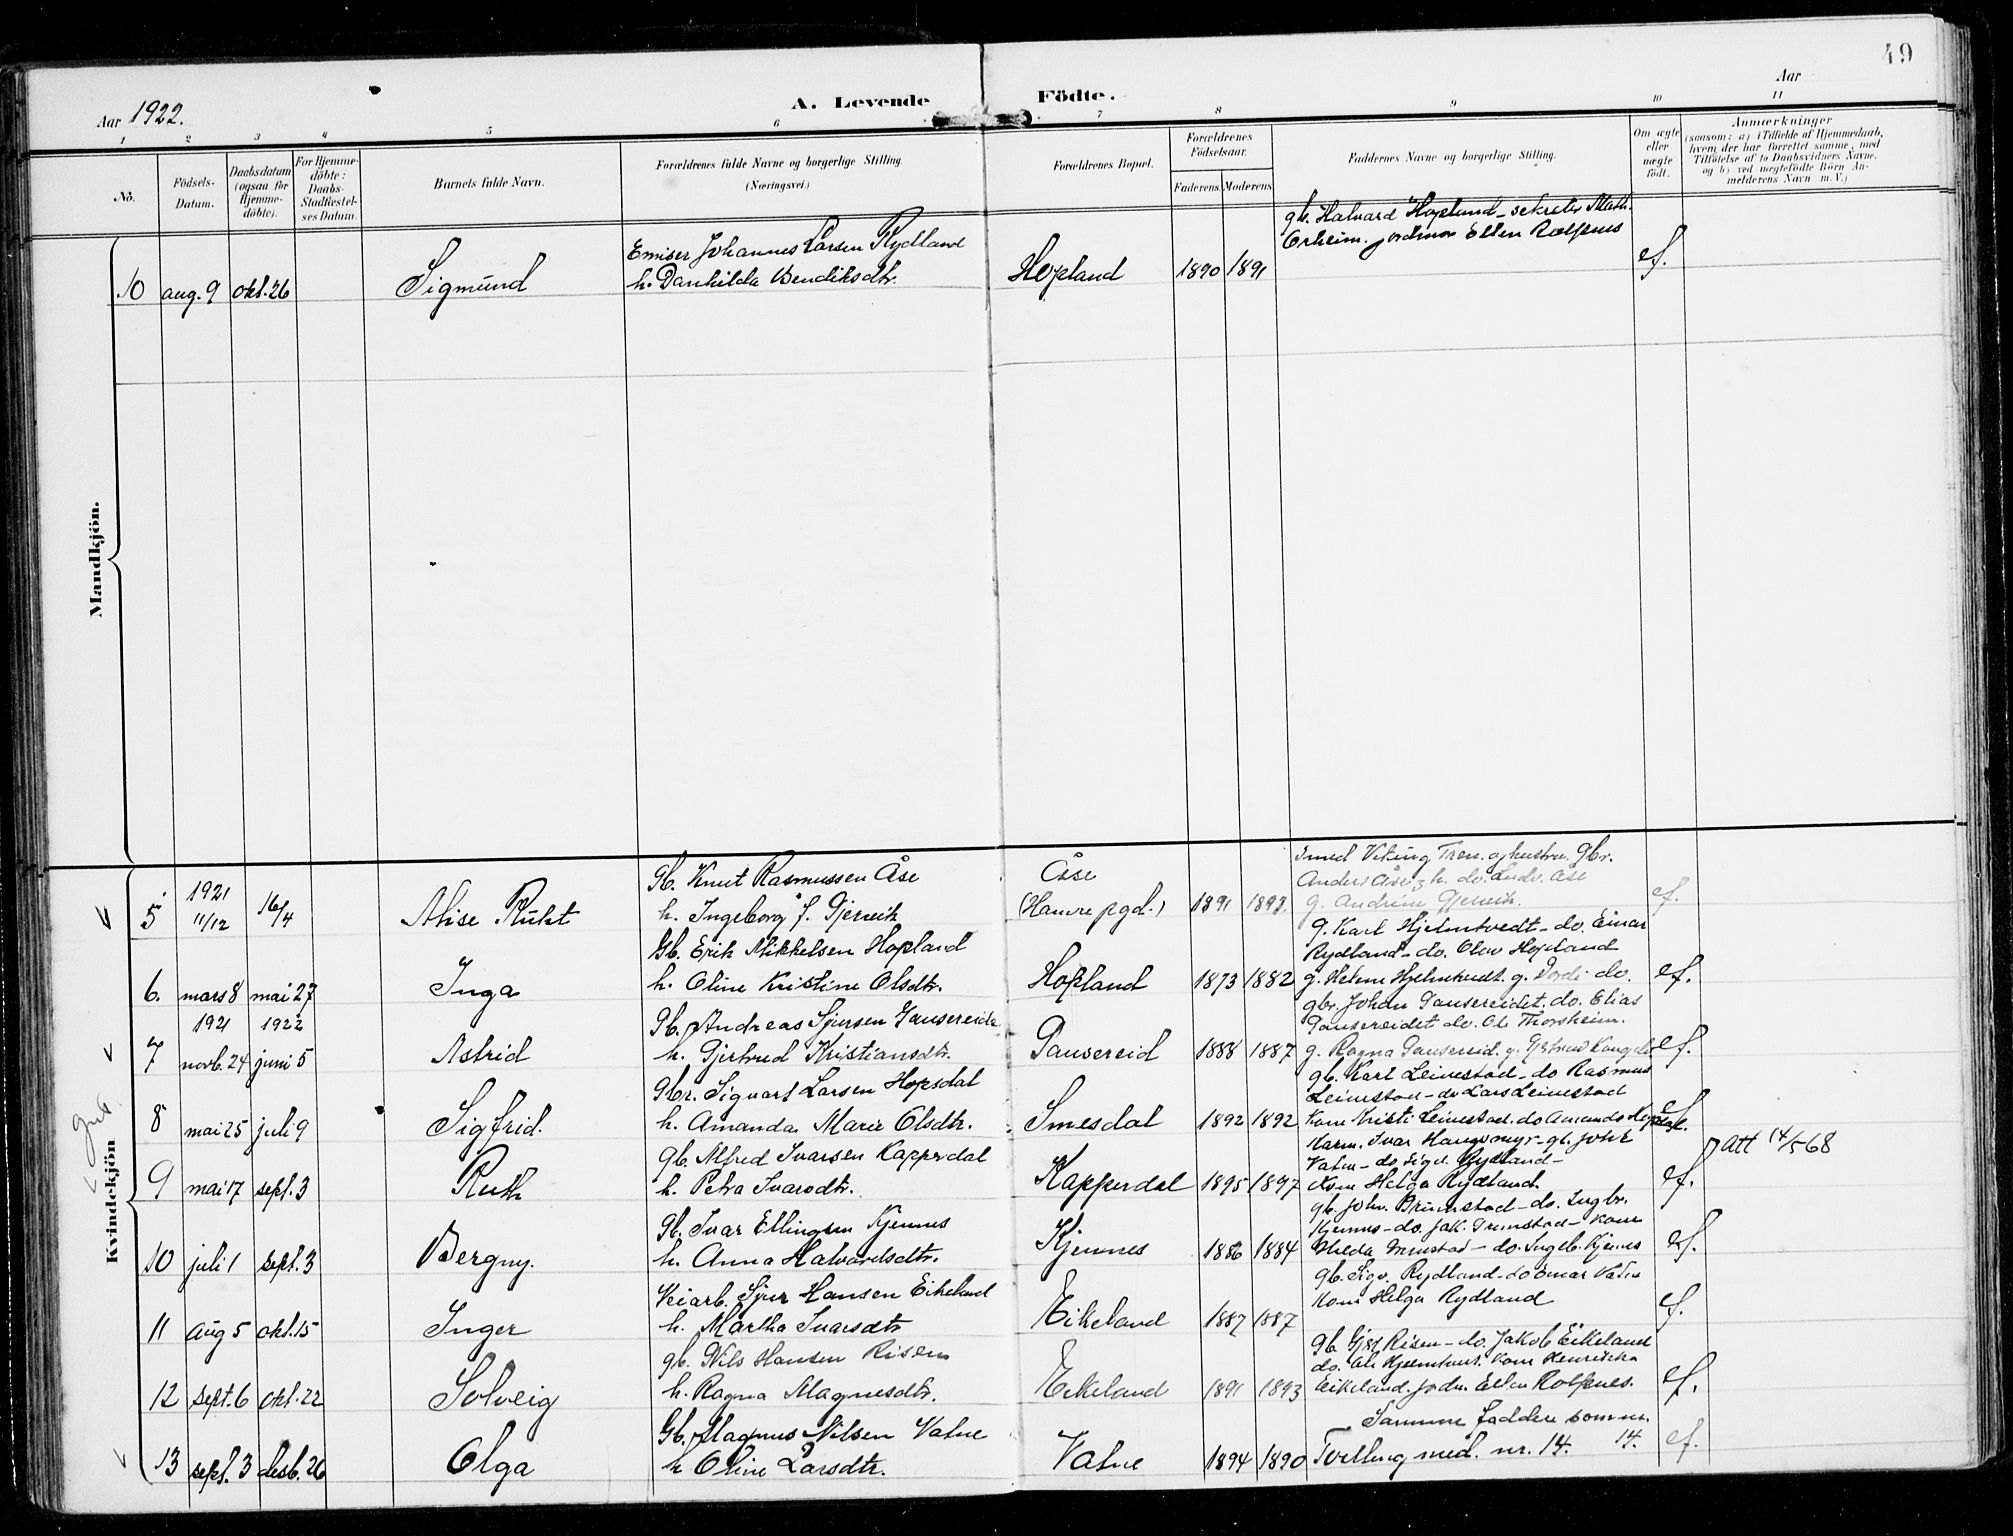 49
Aar 1922.
A. Levende Födte.
Aar
1 2 3 4 5 6 7 8 9 10 11
No.
Födsels-Datum.
Daabsdatum (ogsaa for Hjemme-döbte).
For Hjemme-döbte: Daabs-Stadfæstel-ses Datum.
Barnets fulde Navn.
Forældrenes fulde Navne og borgerlige Stilling.
(Næringsvei.)
Forældrenes Bopæl.
Forældrenes Födselsaar.
Faderens. Moderens.
Faddernes Navne og borgerlige Stilling.
Om ægte eller uægte födt.
Anmærkninger
(saasom: a) i Tilfælde af Hjemmedaab, hvem der har forrettet samme, med Tilföielse af to Daabsvidners Navne, og b) ved uægtefödte Börn Anmelderens Navn m. V.)
Mandkjön.
gb. Halvard Hopland - sekretær Math.
Orheim. jordmor Ellen Rolfsnes
Emisær Johannes Larsen Rydland
10 aug. 9 okt. 26 Sigmund h. Danhilda Bendiksdtr. Hopland 1890 1891 ef.
Kvindekjön
Smed Viking Tren. og hustru. Gbr.
1921 Gb. Knut Rasmussen Åse Åse Anders Åse, h. do. Ludv. Åse
5 11/12 16/4 Alise Ruht h. Ingeborg f. Gjervik (Hamre pgd.) 1891 1893 g. Andrine Gjervik. ef.
g. Karl Hjelmtvedt - do. Einar
Gb. Erik Mikkelsen Hopland Rydland - do. Olav Hopland
6. mars 8 mai 27 Inga h. Oline Kristine Olsdtr. Hopland 1873 1882 g. Helene Hjelmtvedt. g. Bordi do. ef.
1921 1922 gbr. Johan Dansereidet. do. Elias
Gb. Andreas Sjursen Dansereide Dansereidet do. Ole Thorsheim.
7 novb. 24 juni 5 Astrid h. Gjertrud Kristiansdtr. Dansereid 1888 1887 g. Ragna Dansereid. g. ef.
gb. Karl Leinestad - do Rasmus
Gbr. Sigvart Larsen Hopsdal Leinestad - do Lars Leinestad
8 mai 25 juli 9 Sigfrid. h. Amanda Marie Olsdtr. Smesdal 1892 1892 Kone Kristi Leinestad. do Amanda ef.
Gb. Alfred Ivarsen Kapperdal Vatne - do Sigv. Rydland -
9 mai 17 sept. 3 Ruth h. Petra Ivarsdtr. Kapperdal 1895 1897 Kone Helga Rydland. ef. att 14/5 68
gb. Joh. Brimstad - do. Ingbr.
Gb. Ivar Ellingsen Kjennes Kjennes - do. Jak. Trimstad - Kone
10 juli 1 sept. 3 Bergny. h. Anna Halvardsdtr. Kjennes 1886 1884 - do. Ingeb. Kjennes ef.
gb. Sigv. Rydland - do Einar Vatne
Veiarb. Sjur Hansen Eikeland Kone Helga Rydland
11 aug 5 okt. 15 Inger h. Martha Ivarsdtr Eikeland 1887 1887 ef.
gb. Gjert Risen - do. Jakob Eikeland
gb. Nils Hansen Risen do. Kone Henrikka
12 sept. 6 okt. 22 Solveig h. Ragna Magnesdtr. Eikeland 1891 1893 Eikeland. jordm. Ellen Rolfsnes. ef.
Gb. Magnus Nilsen Vatne Samme faddere som nr. 14.
13 sept. 3 desb. 26 Olga h Oline Larsdtr. Vatne 1894 1890 Tvilling med. nr. 14. ef.